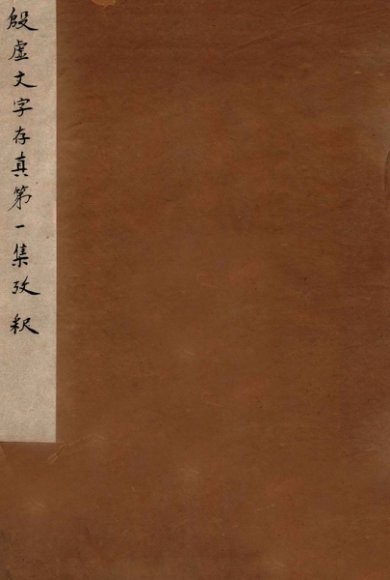 殷虚文字存真第一集攷釈